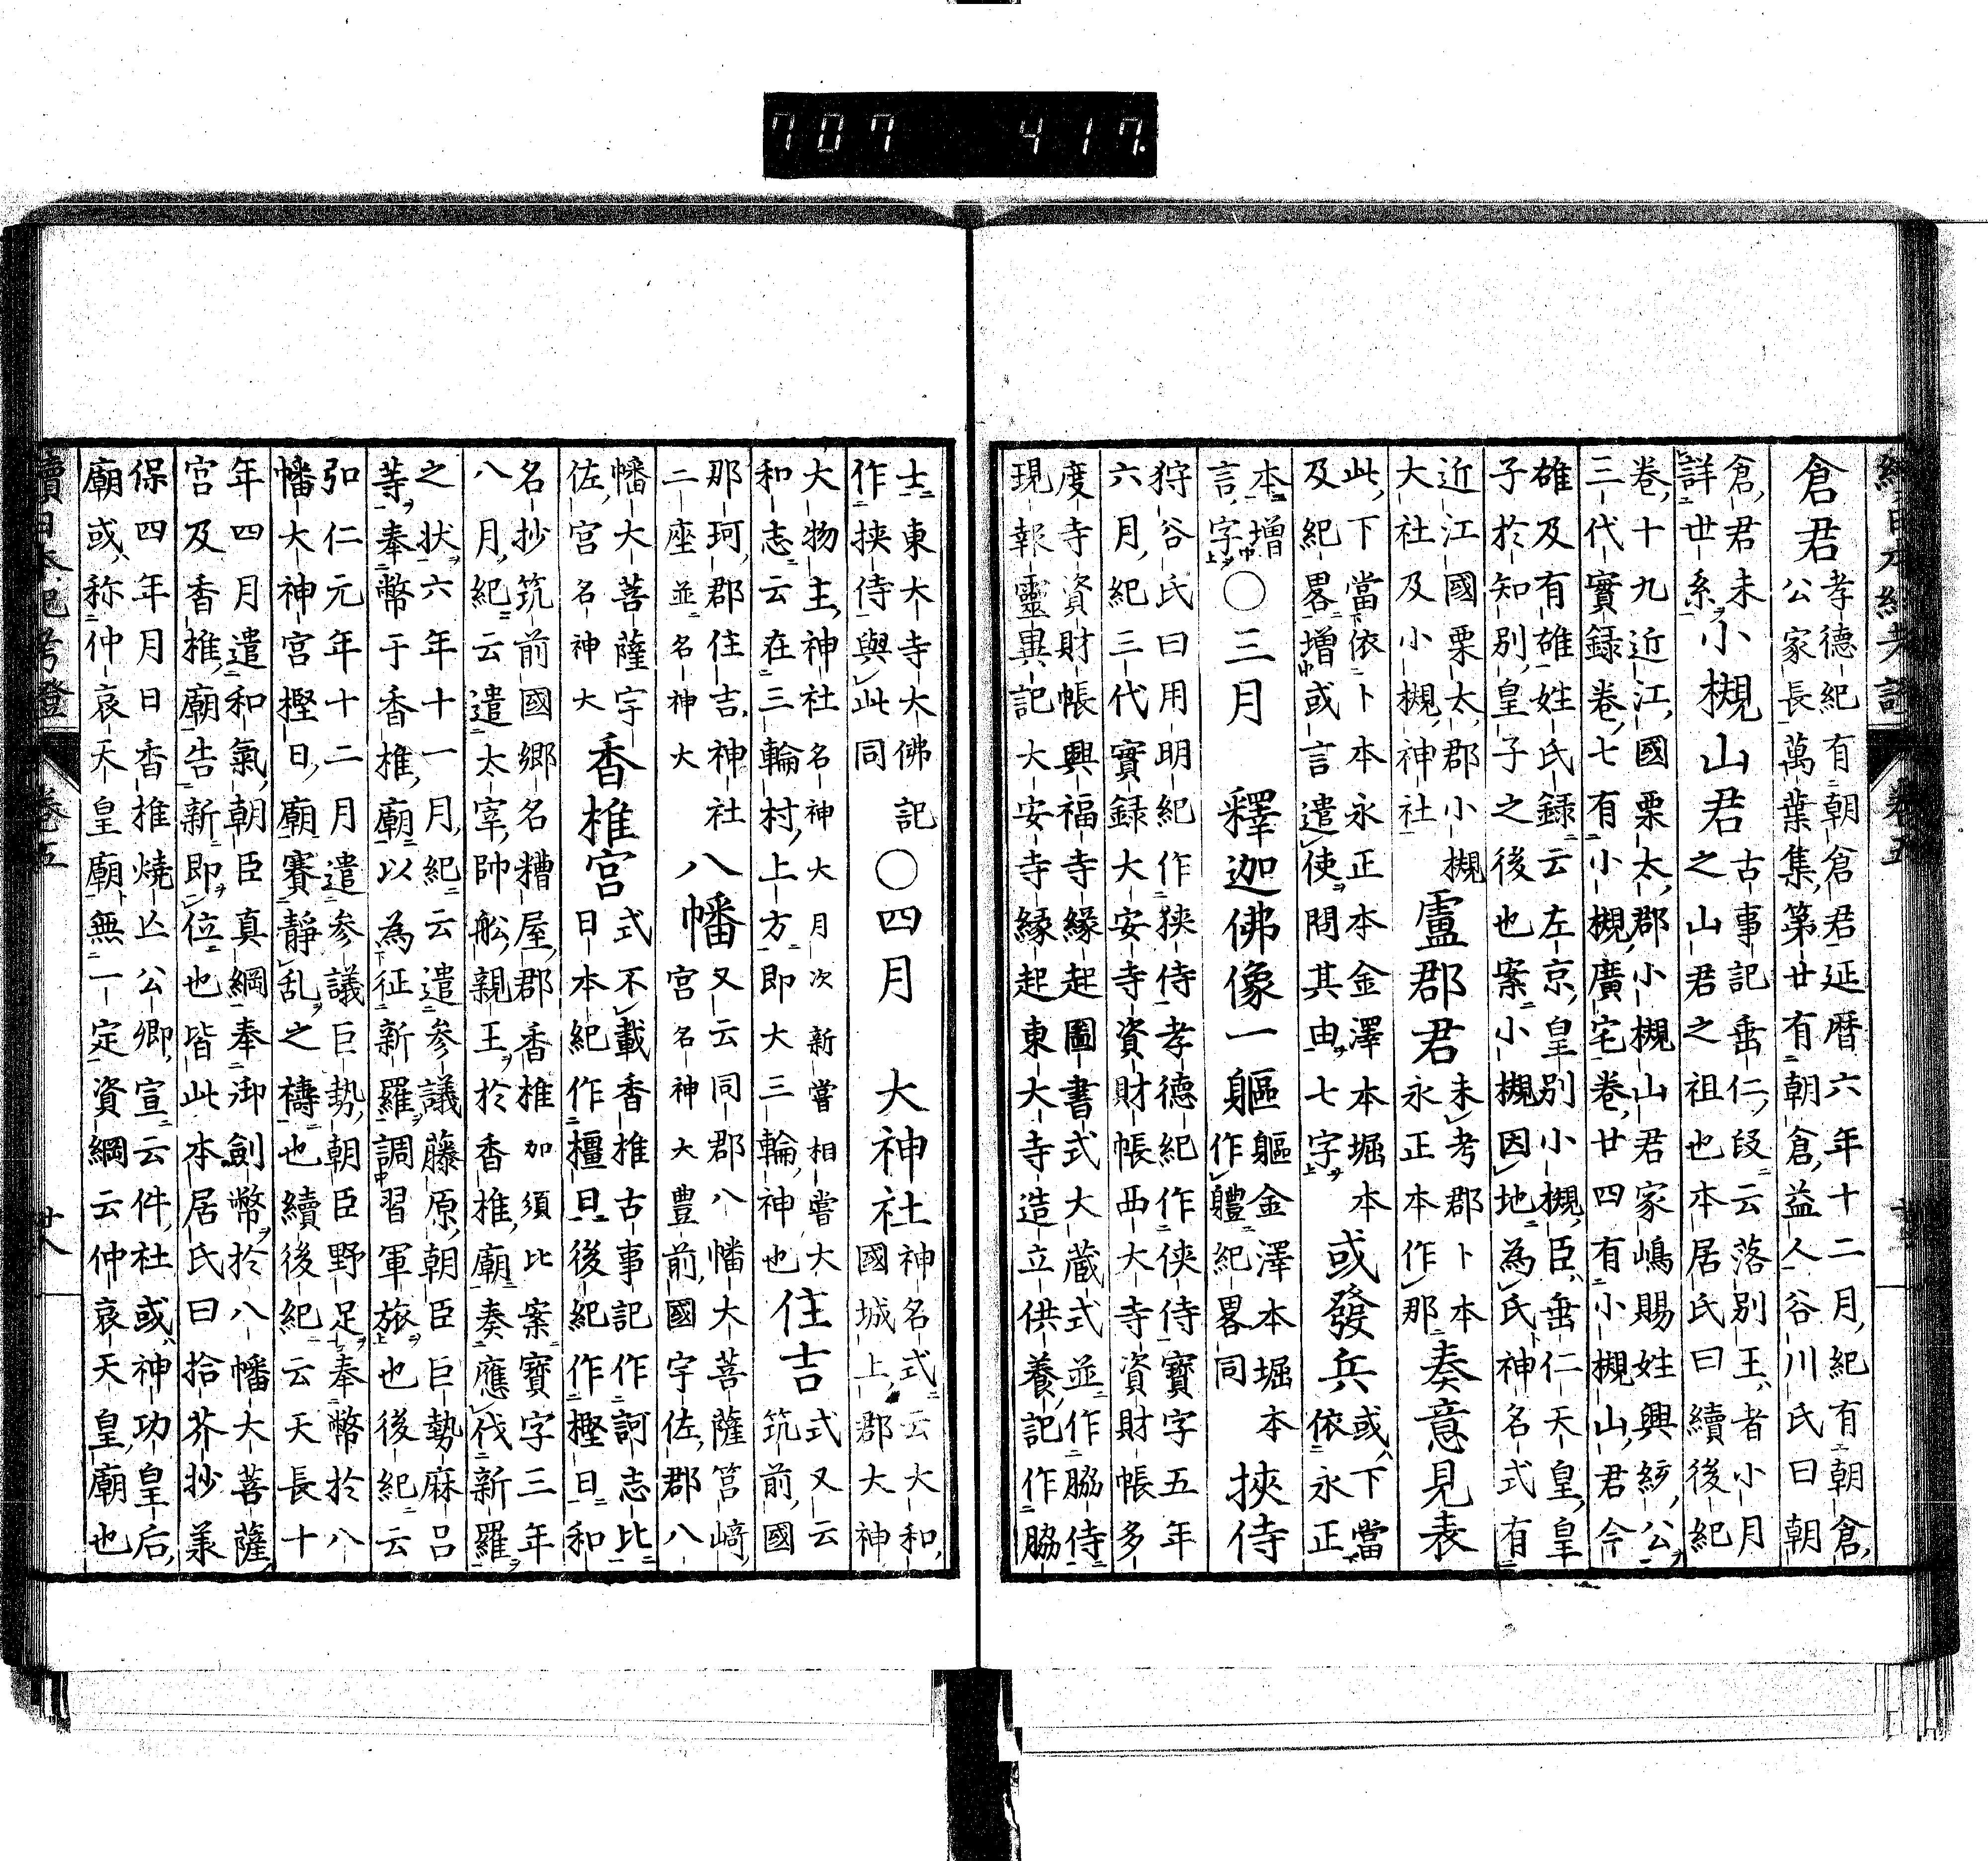 續日本紀考證 卷五
倉君
孝德紀有朝倉君延暦六年十二月紀有朝倉
公家長萬葉集第廿有朝倉益人谷川氏曰朝
倉君未
詳世系
小槻山君
古事記垂仁段云落別王者小月
之山君之祖也本居氏曰續後紀
卷十九近江國栗太郡小槻山君家嶋賜姓興統公
三代實録卷七有小槻廣宅卷廿四有小槻山君今
雄及有雄姓氏録云左京皇別小槻臣垂仁天皇皇
子於知別皇子之後也案小槻因地為氏神名式有
近江國栗太郡小槻
大社及小槻神社
盧郡君
未考郡卜本
永正本作那
奏意見表
此下當依卜本永正本金澤本堀本
及紀畧増或言遣使問其由七字
或發兵
或下當
依永正
本増
言字
○三月 釋迦佛像一軀
軀金澤本堀本
作軆紀畧同
挾侍
狩谷氏曰用明紀作挾侍孝德紀作侠侍寳字五年
六月紀三代實録大安寺資財帳西大寺資財帳多
度寺資財帳興福寺縁起圖書式大藏式並作脇侍
現報靈異記大安寺縁起東大寺造立供養記作脇
士東大寺大佛記
作挾侍與此同
○四月 大神社
神名式云大和
國城上郡大神
大物主神社名神大月次新嘗相嘗大
和志云在三輪村上方即大三輪神也
住吉
式又云
筑前國
那珂郡住吉神社
二座並名神大
八幡
又云同郡八幡大菩薩筥﨑
宮名神大豊前國宇佐郡八
幡大菩薩宇
佐宮名神大
香椎宮
式不載香椎古事記作訶志比
日本紀作橿日後紀作樫日和
名抄筑前國郷名糟屋郡香椎加須比案寳字三年
八月紀云遣太宰帥船親王於香椎廟奏應伐新羅
之状六年十一月紀云遣参議藤原朝臣巨勢麻呂
等奉幣于香椎廟以為征新羅調習軍旅也後紀云
弘仁元年十二月遣参議巨勢朝臣野足奉幣於八
幡大神宮樫日廟賽靜乱之禱也續後紀云天長十
年四月遣和氣朝臣真綱奉御劍幣於八幡大菩薩
宮及香椎廟告新即位也皆此本居氏曰拾芥抄載
保四年月日香椎燒亡公卿宣云件社或神功皇后
廟或称仲哀天皇廟無一定資綱云仲哀天皇廟也
續日本紀考證 卷五 廿八